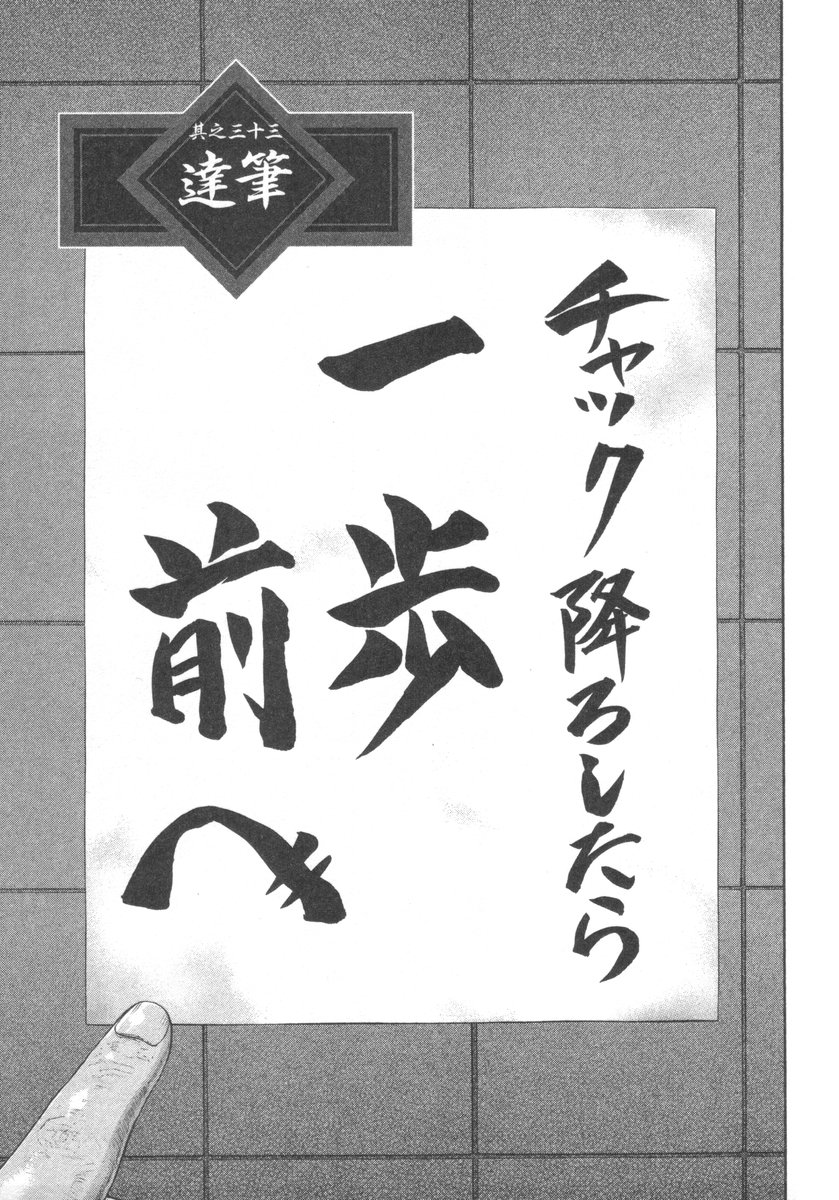 其之三十三
達筆
チャック降ろしたら
一歩
前へ